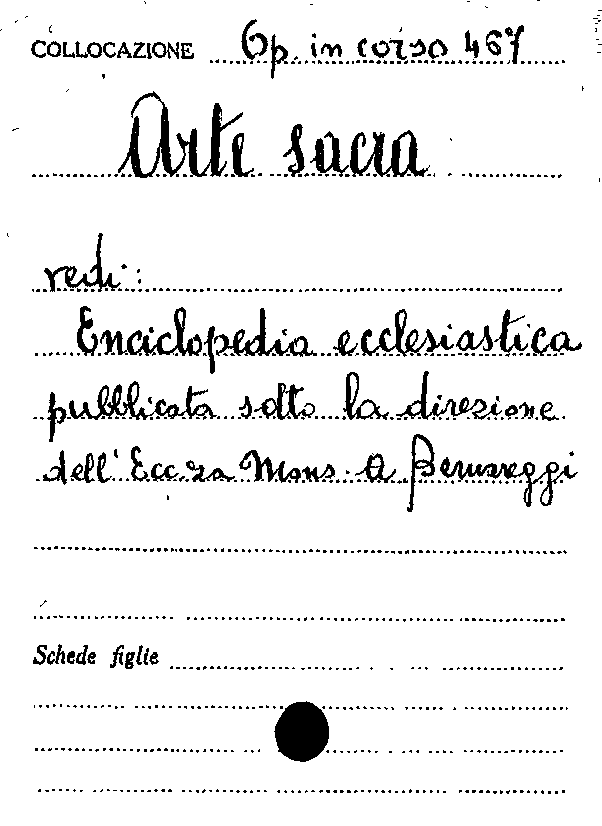 COLLOCAZIONE Op. in corso 467
Arte sacra
vedi:
Enciclopedia ecclesiastica
pubblicata sotto la direzione
dell'Ecc.za Mons. A Bernareggi
Schede figlie